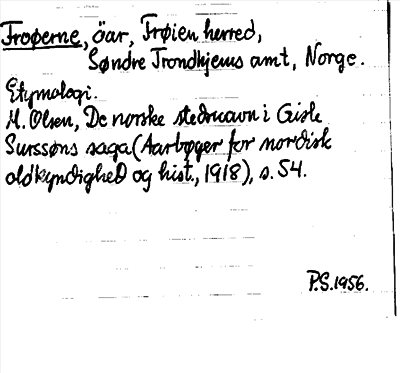 Froøerne, öar, Frøien herred,
Søndre Trondhjems amt, Norge.
Etymologi.
M. Olsen, De norske stednavn i Gisle
Surssøns saga (Aarbøger for nordisk
oldkyndighed og hist., 1918), s. 54.
P.S. 1956.